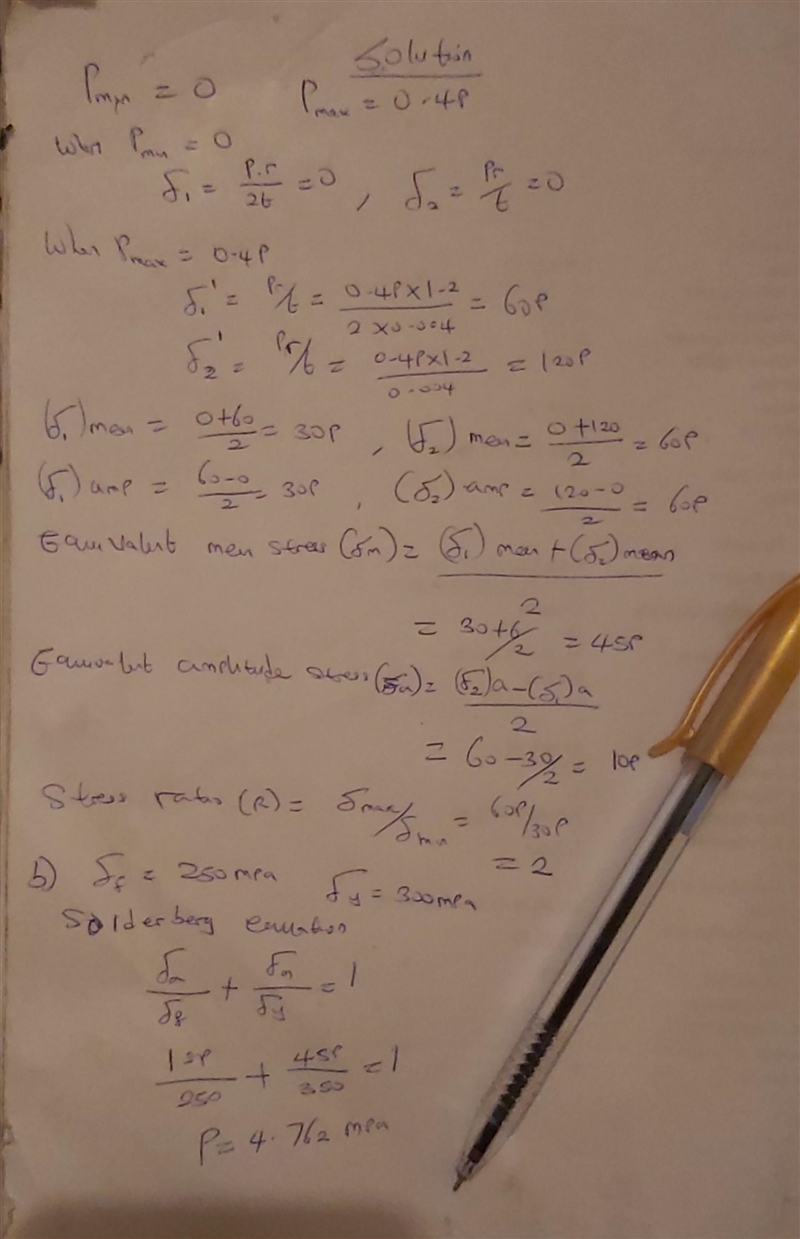 Solution
Pmin = 0 Pmax = 0.4P
When Pmin = 0
δ₁ = P.r/2t = 0 , δ₂ = Pr/t = 0
When Pmax = 0.4P
δ₁' = Pr/t = 0.4P×1.2/2×0.004 = 60P
δ₂' = Pr/t = 0.4P×1.2/0.004 = 120P
(δ₁) mean = 0+60/2 = 30P , (δ₂) mean = 0+120/2 = 60P
(δ₁) amp = 60-0/2 = 30P , (δ₂) amp = 120-0/2 = 60P
Equivalent mean stress (δm) = (δ₁) mean + (δ₂) mean
2
= 30+6/2 = 45P
Equivalent amplitude stress (δa) = (δ₂)a-(δ₁)a
2
= 60-30/2 = 10P
Stress ratio (R) = δmax/δmin = 60P/30P
= 2
b) δf = 250mpa δy = 300mpa
Solderberg equation
δa/δf + δm/δy = 1
15P/250 + 45P/350 = 1
P = 4.762 mpa